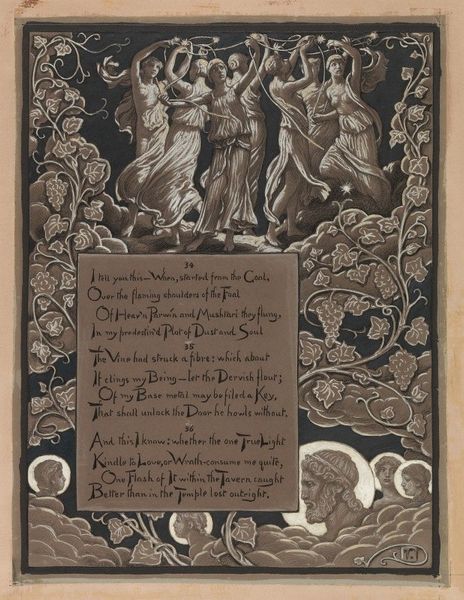 34
I tell you this—When, started from the Goal,
Over the flaming shoulders of the Foal
Of Heav'n Parwin and Mushtari they flung,
In my predestin'd Plot of Dust and Soul
35
The Vine had struck a fibre: which about
If clings my Being—let the Dervish flout;
Of my Base metal may be filed a Key,
That shall unlock the Door he howls without.
36
And this I know: whether the one True Light
Kindle to Love, or Wrath-consume me quite,
One Flash of It within the Tavern caught
Better than in the Temple lost outright.
V.